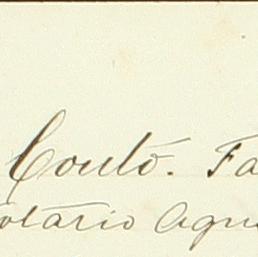 Couto. Fa
otario Agu